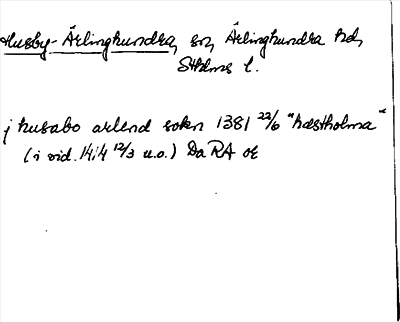 Husby-Ärlinghundra, sn, Ärlinghundra hd,
Sthlms l.
j husabo arlend sokn 1381 22/6 "hæstholma"
(i vid. 1414 12/3 u.o.) Da RA or